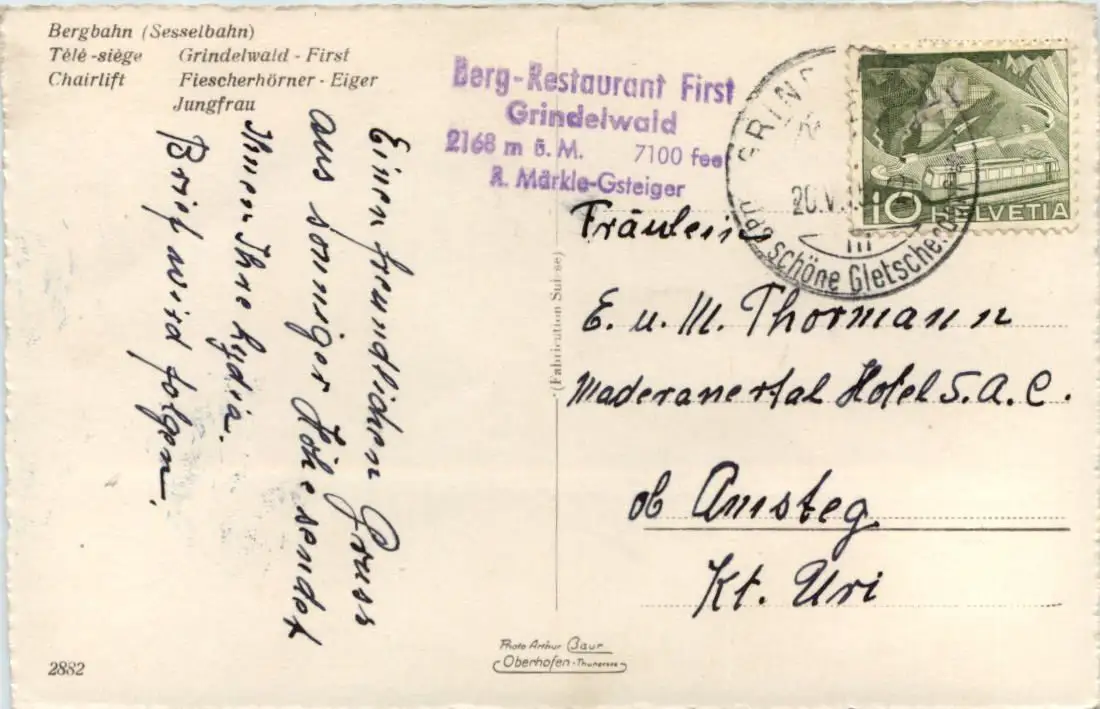 Bergbahn (Sesselbahn)
Télé-siège Grindelwald - First
Chairlift Fiescherhörner - Eiger
Jungfrau
Berg-Restaurant First
Grindelwald
2168 m ü. M. 7100 feet
R. Märkle-Gsteiger
10 HELVETIA
GRIND
20.V
schöne Gletscher
Einen freundlichen Gruss
aus sonniger Höhe sendet
Ihnen Ihre Lydia.
Brief wird folgen.
(Fabrication Suisse)
Fräulein
E. u. M. Thormann
Maderanertal Hotel S.A.C.
ob Amsteg
Kt. Uri
Photo Arthur Baur
Oberhofen-Thunersee
2882